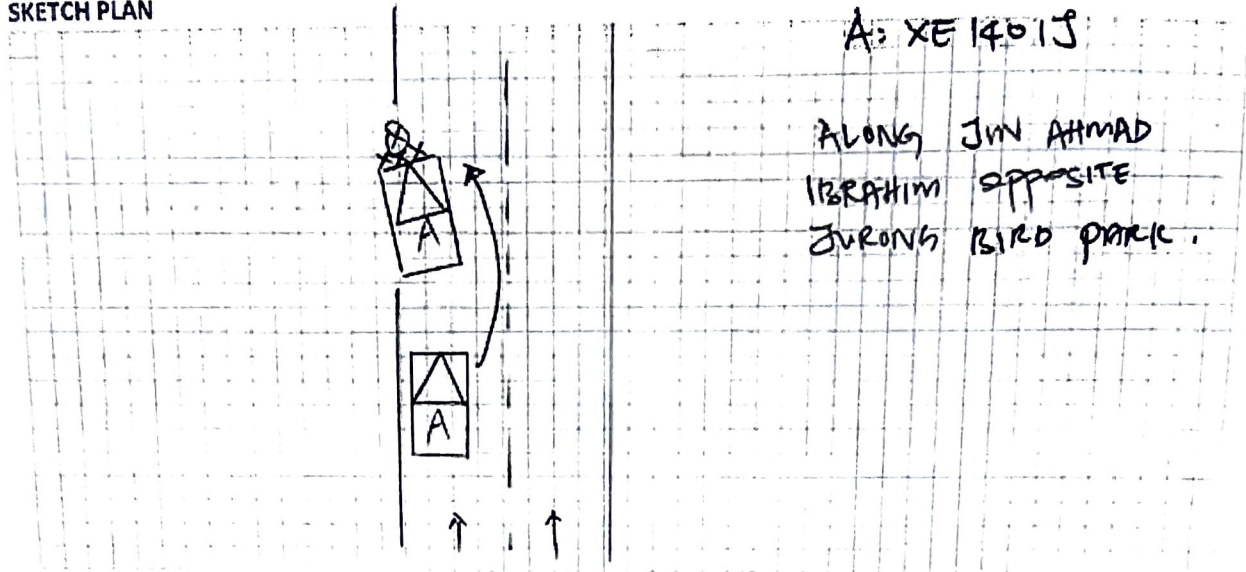 SKETCH PLAN
A: XE 1401J
ALONG JLN AHMAD
IBRAHIM OPPOSITE
JURONG BIRD PARK.
A
A